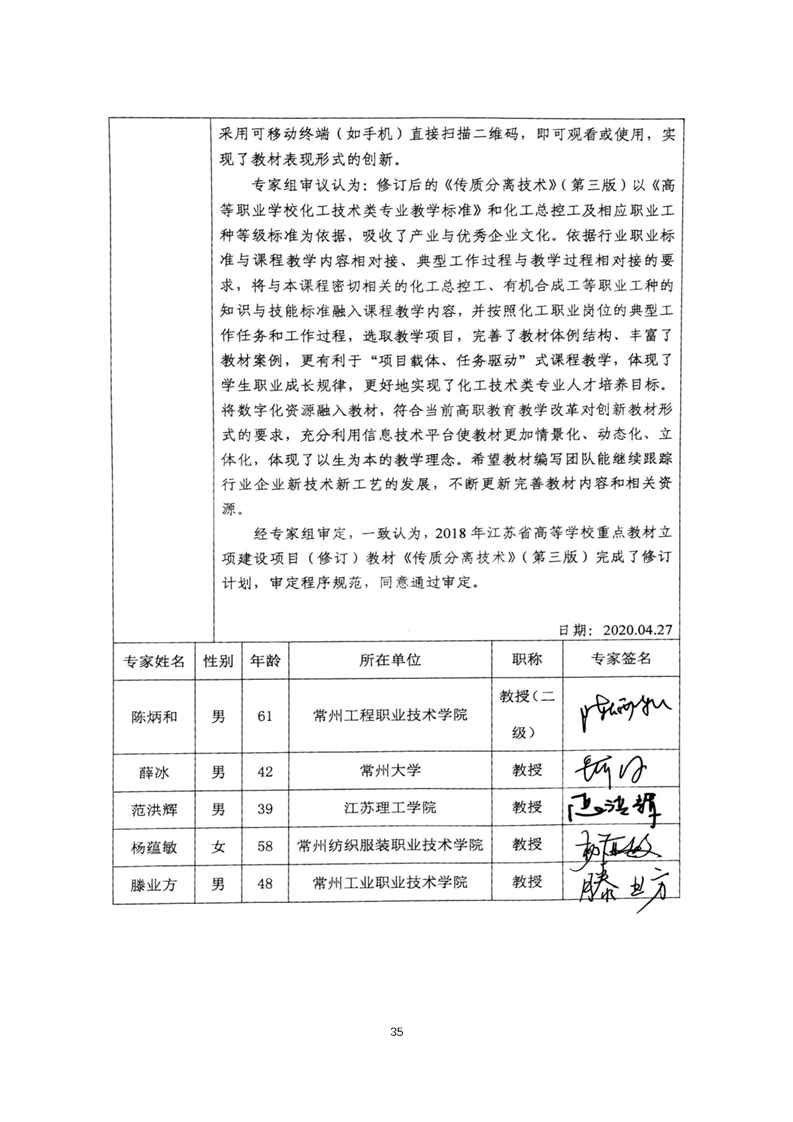 采用可移动终端（如手机）直接扫描二维码，即可观看或使用，实
现了教材表现形式的创新。
专家组审议认为：修订后的《传质分离技术》（第三版）以《高
等职业学校化工技术类专业教学标准》和化工总控工及相应职业工
种等级标准为依据，吸收了产业与优秀企业文化。依据行业职业标
准与课程教学内容相对接、典型工作过程与教学过程相对接的要
求，将与本课程密切相关的化工总控工、有机合成工等职业工种的
知识与技能标准融入课程教学内容，并按照化工职业岗位的典型工
作任务和工作过程，选取教学项目，完善了教材体例结构、丰富了
教材案例，更有利于“项目载体、任务驱动”式课程教学，体现了
学生职业成长规律，更好地实现了化工技术类专业人才培养目标。
将数字化资源融入教材，符合当前高职教育教学改革对创新教材形
式的要求，充分利用信息技术平台使教材更加情景化、动态化、立
体化，体现了以生为本的教学理念。希望教材编写团队能继续跟踪
行业企业新技术新工艺的发展，不断更新完善教材内容和相关资
源。
经专家组审定，一致认为，2018 年江苏省高等学校重点教材立
项建设项目（修订）教材《传质分离技术》（第三版）完成了修订
计划，审定程序规范，同意通过审定。
日期：2020.04.27
专家姓名 性别 年龄 所在单位 职称 专家签名
陈炳和 男 61 常州工程职业技术学院 教授（二级） 陈炳和
薛冰 男 42 常州大学 教授 薛冰
范洪辉 男 39 江苏理工学院 教授 范洪辉
杨蕴敏 女 58 常州纺织服装职业技术学院 教授 杨蕴敏
滕业方 男 48 常州工业职业技术学院 教授 滕业方
35